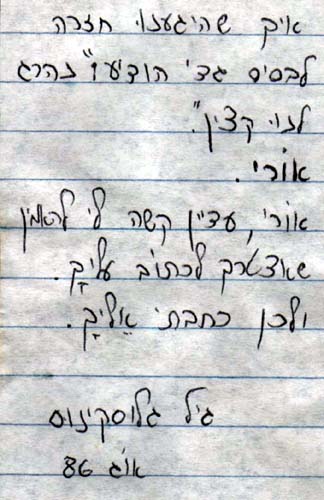 איך שהיגענו חזרה
לבסיס גדי הודיע ו"נהרג
לנו קצין".
אורי.
אורי, עדיין קשה לי להאמין
שאצטרך לכתוב עליך.
ולכן כתבתי אליך.
גיל גלוסקינוס
אוג 86